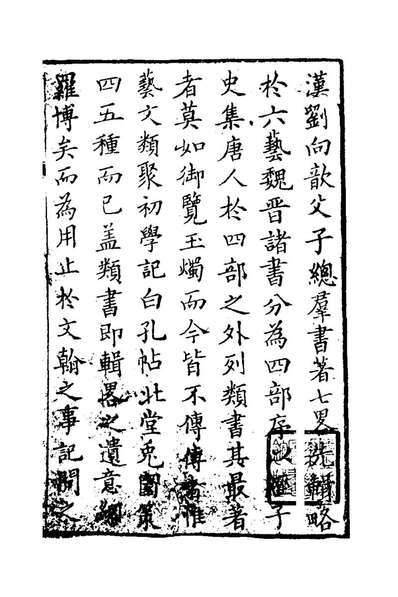 漢劉向歆父子總羣書著七畧先輯略
於六藝魏晉諸書分為四部序以經子
史集唐人於四部之外列類書其最著
者莫如御覽玉燭而今皆不傳傳者惟
藝文類聚初學記白孔帖北堂兎園策
四五種而已盖類書即輯畧之遺意網
羅博矣而為用止於文翰之事記問之